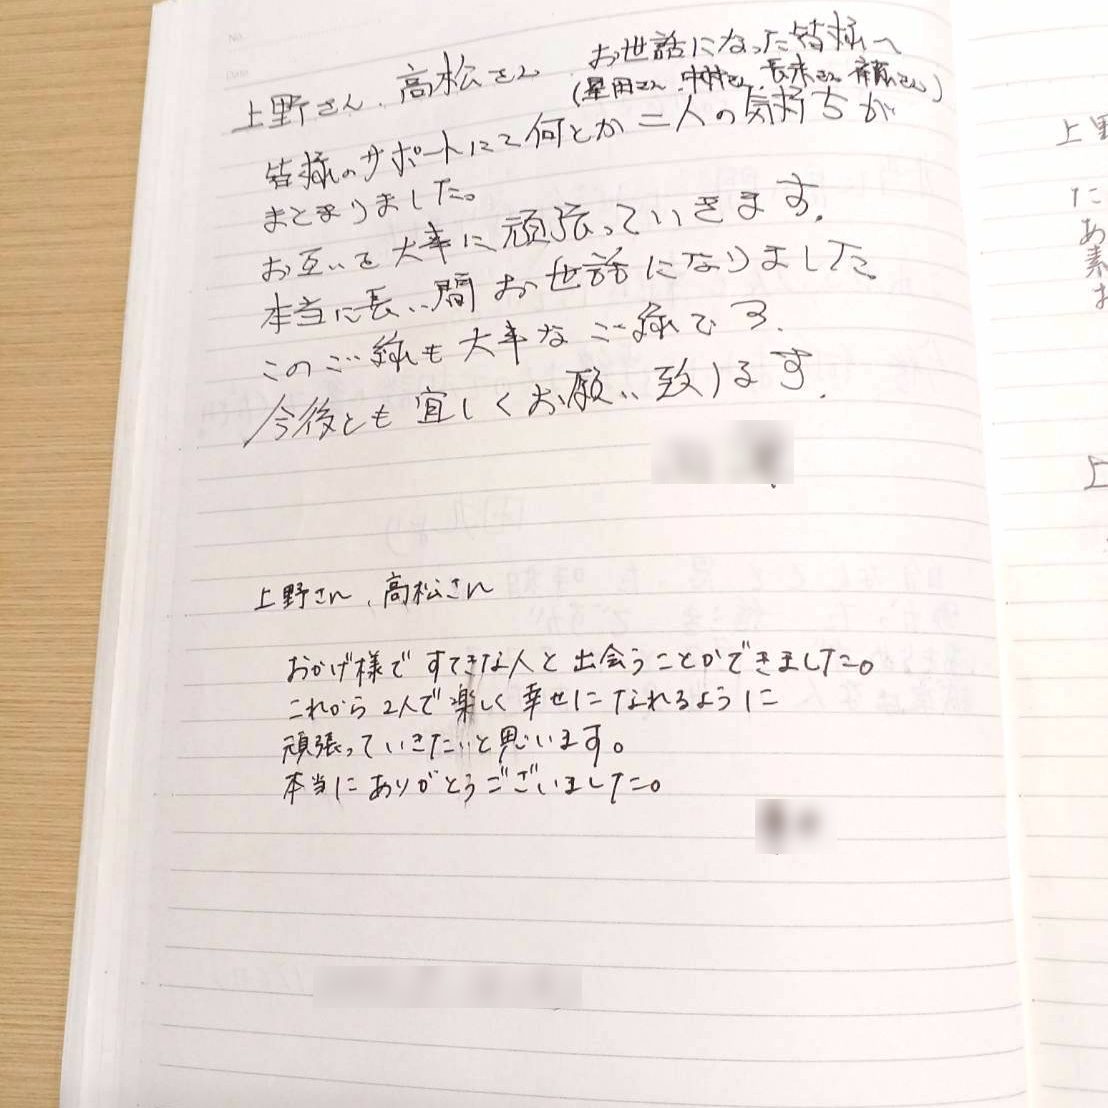 上野さん、高松さん、お世話になった皆様へ
(星田さん、中村さん、長末さん、斎藤さん)
皆様のサポートにて何とか二人の気持ちが
まとまりました。
お互いを大事に頑張っていきます。
本当に長い間お世話になりました。
このご縁も大事なご縁です.
今後とも宜しくお願い致します.
上野さん、高松さん
おかげ様ですてきな人と出会うことができました。
これから2人で楽しく幸せになれるように
頑張っていきたいと思います。
本当にありがとうございました。
上野
た
あ
素
お
上